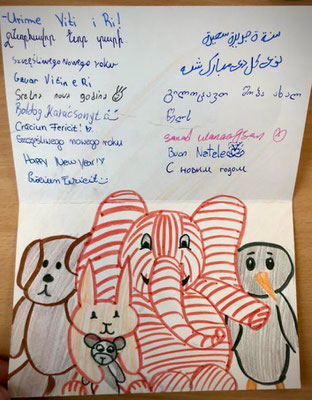 -Urime Viti i Ri!
շնորհավոր նոր տարի
Szczęśliwego Nowego roku
Gëzuar Vitin e Ri
Srećna nova godina
Boldog Karácsonyt
Crăciun Fericit!
Szczęśliwego nowego roku
Happy New Year!
Crăciun Fericit
سنة جديدة سعيدة
نوی کال دی مبارک شه
გილოცავთ შობა ახალ
წელს
sanad
Buon Natele
С новым годом